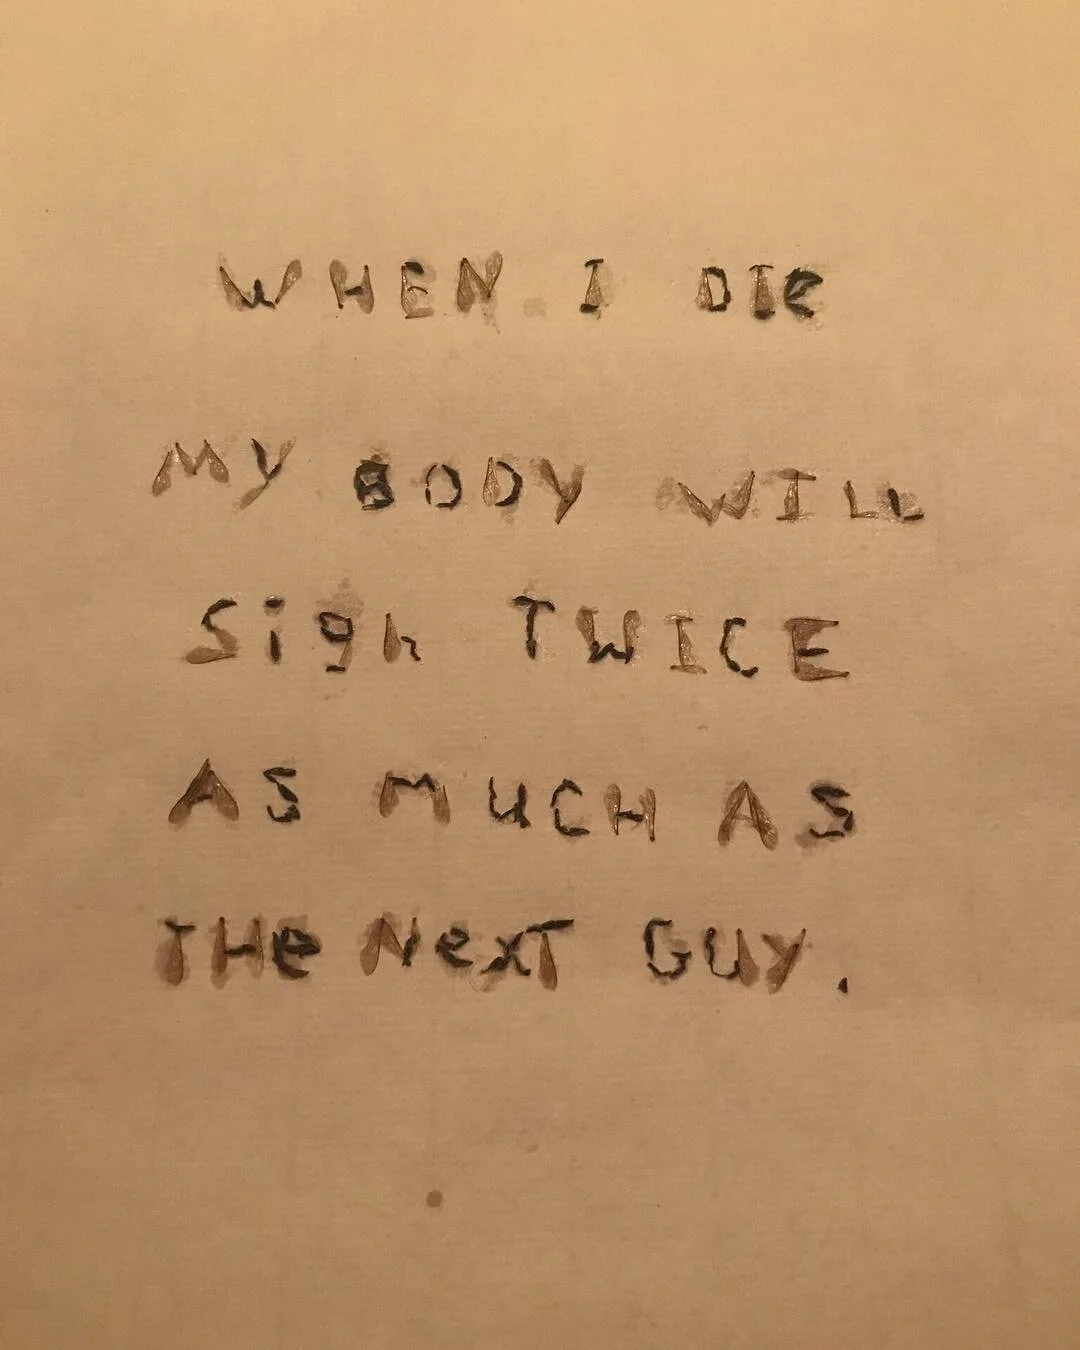 WHEN I DIe
MY BODY WILL
Sigh TWICE
AS MUCH AS
THe NexT GUY.